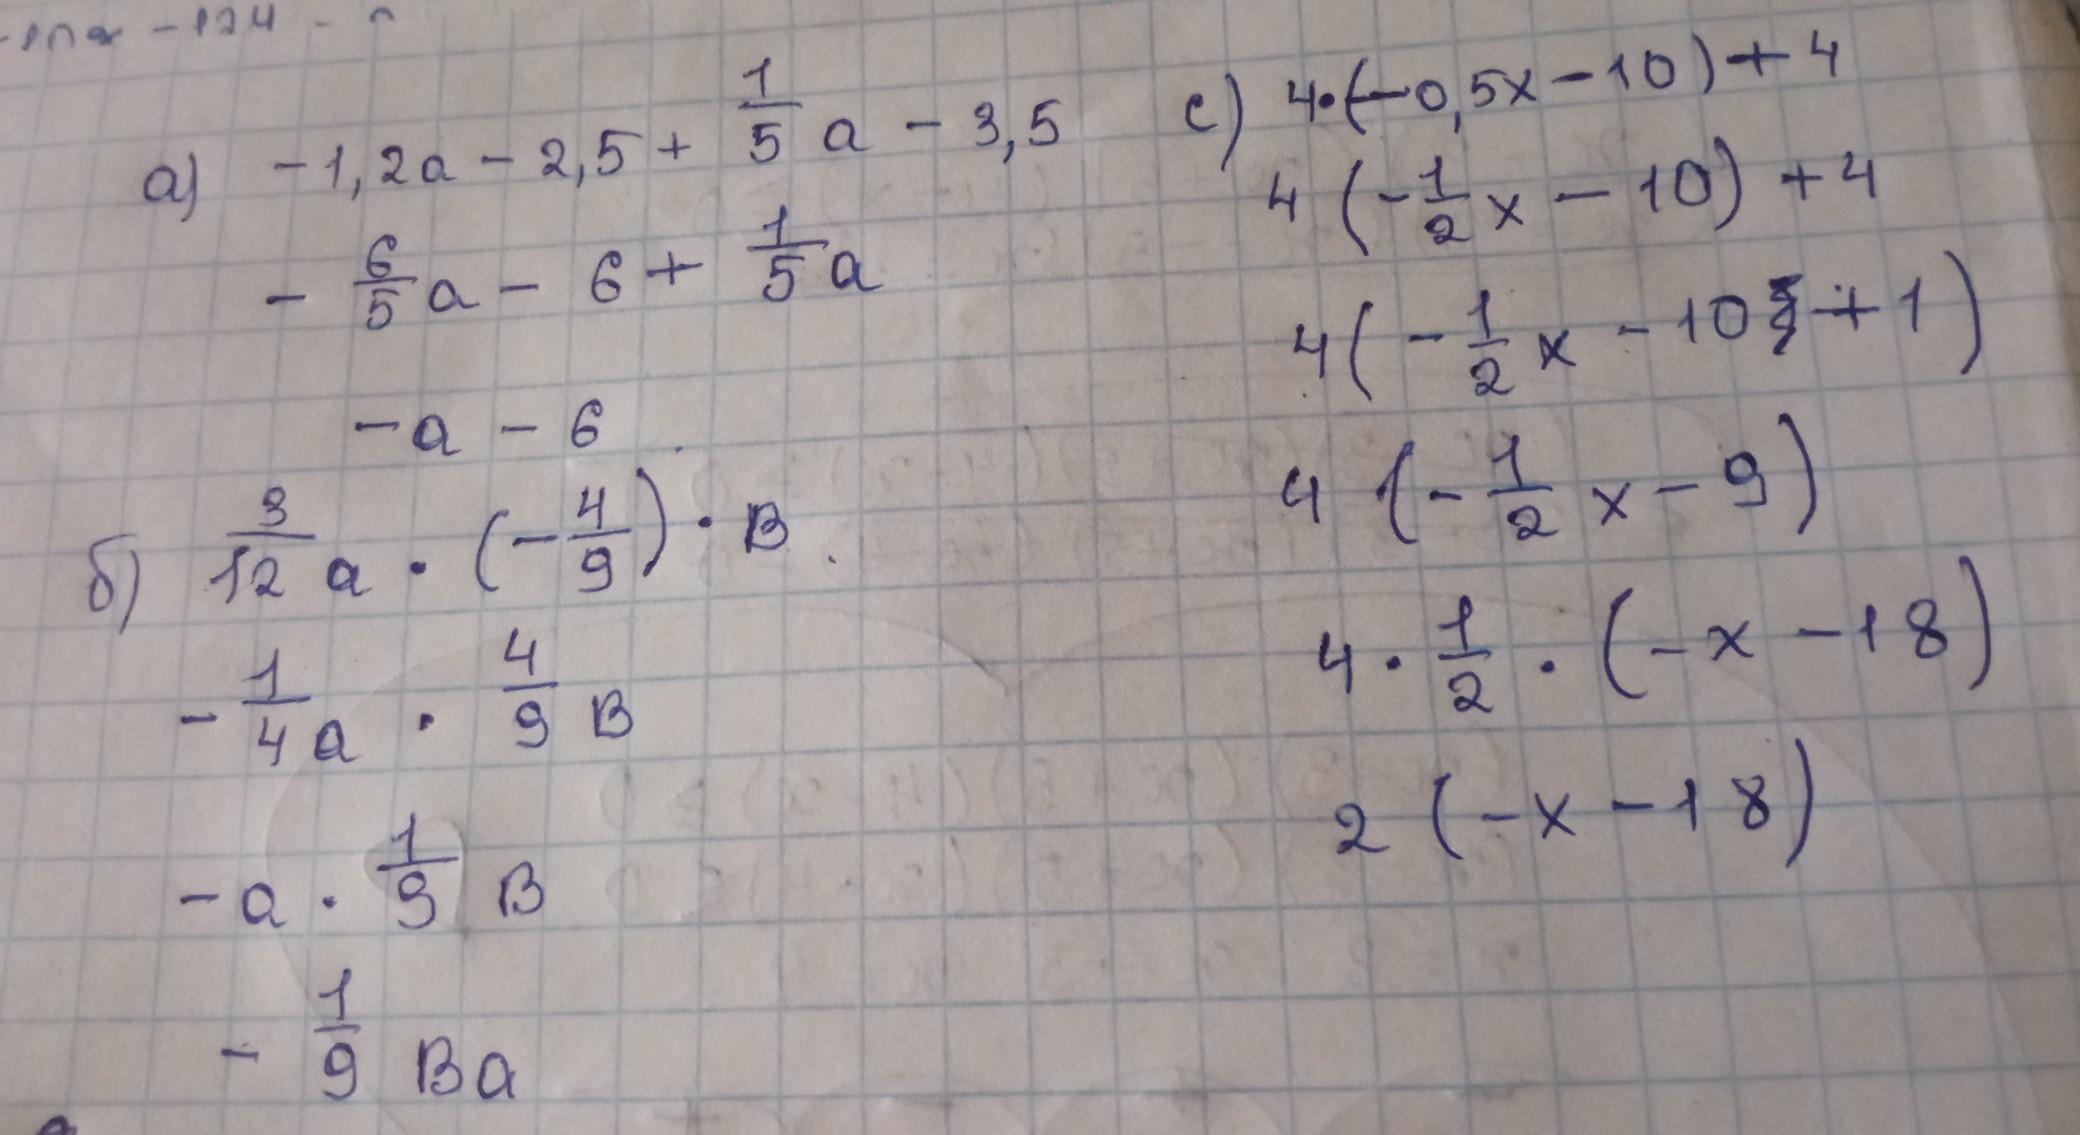 а) -1,2a - 2,5 + 1/5 a - 3,5
- 6/5 a - 6 + 1/5 a
-a - 6
б) 3/12 a · (- 4/9) · B
- 1/4 a · 4/9 B
-a · 1/9 B
- 1/9 Ba
c) 4·(-0,5x - 10) + 4
4 (- 1/2 x - 10) + 4
4 (- 1/2 x - 10 + 1)
4 (- 1/2 x - 9)
4 · 1/2 · (-x - 18)
2 (-x - 18)